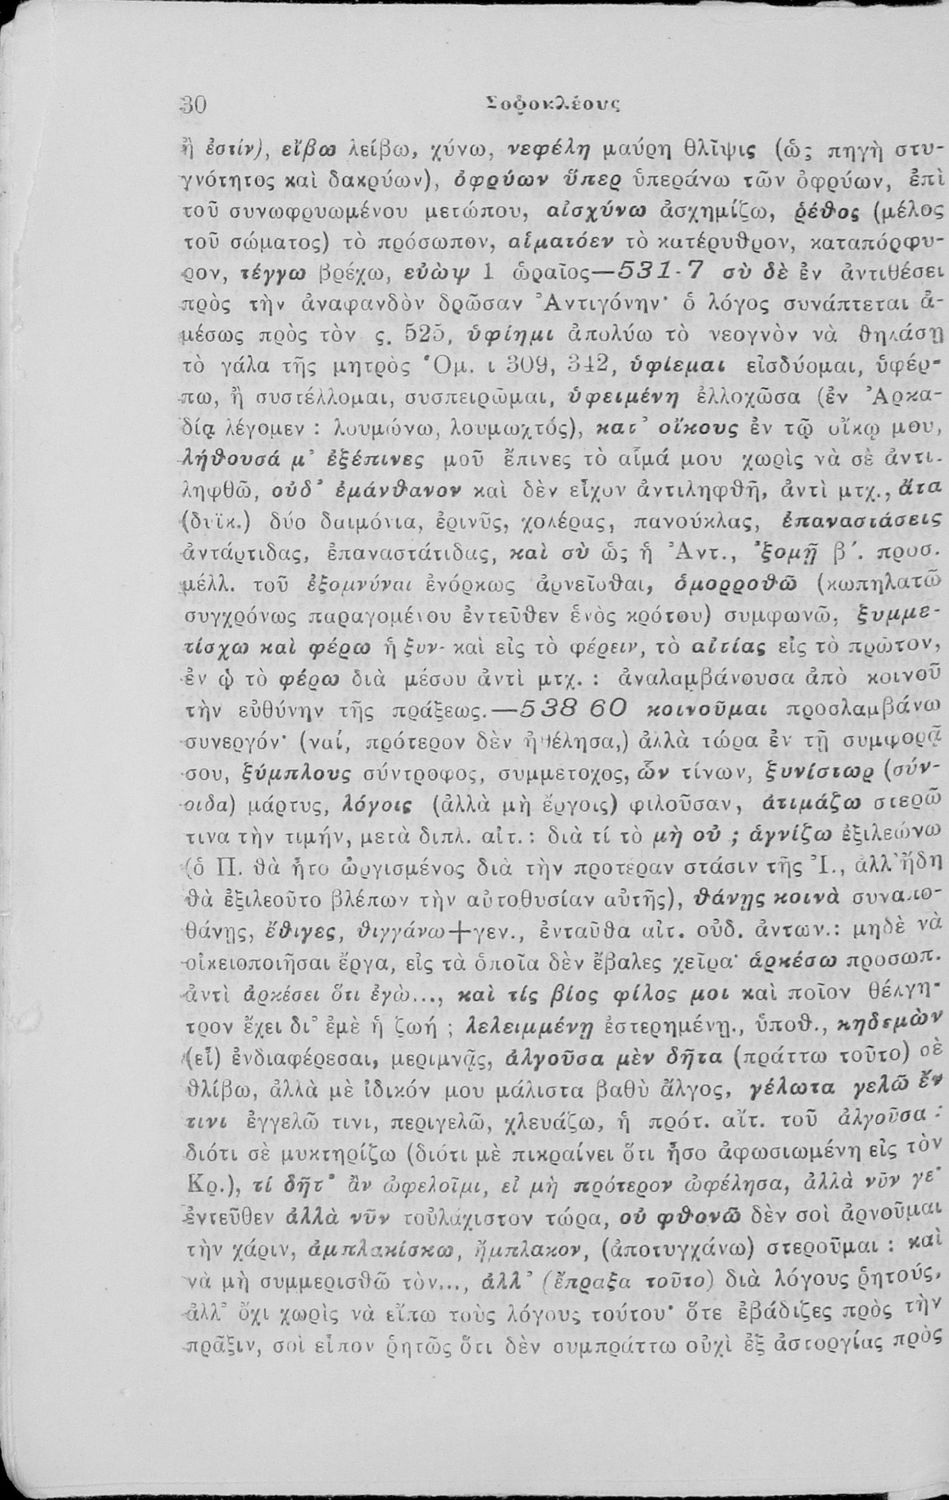 30 Σοφοκλέους
ἢ ἐστίν), εἴβω λείβω, χύνω, νεφέλη μαύρη θλῖψις (ὡς πηγὴ στυ-
γνότητος καὶ δακρύων), ὀφρύων ὕπερ ὑπεράνω τῶν ὀφρύων, ἐπὶ
τοῦ συνωφρυωμένου μετώπου, αἰσχύνω ἀσχημίζω, ῥέθος (μέλος
τοῦ σώματος) τὸ πρόσωπον, αἱματόεν τὸ κατέρυθρον, καταπόρφυ-
ρον, τέγγω βρέχω, εὐὼψ 1 ὡραῖος—531-7 σὺ δὲ ἐν ἀντιθέσει
πρὸς τὴν ἀναφανδὸν δρῶσαν Ἀντιγόνην· ὁ λόγος συνάπτεται ἀ-
μέσως πρὸς τὸν ς. 525, ὑφίημι ἀπολύω τὸ νεογνὸν νὰ θηλάσῃ
τὸ γάλα τῆς μητρὸς Ὁμ. ι 309, 342, ὑφίεμαι εἰσδύομαι, ὑφέρ-
πω, ἢ συστέλλομαι, συσπειρῶμαι, ὑφειμένη ἐλλοχῶσα (ἐν Ἀρκα-
δίᾳ λέγομεν : λουμώνω, λουμωχτός), κατ' οἴκους ἐν τῷ οἴκῳ μου,
λήθουσά μ' ἐξέπινες μοῦ ἔπινες τὸ αἷμά μου χωρὶς νὰ σὲ ἀντι-
ληφθῶ, οὐδ' ἐμάνθανον καὶ δὲν εἶχον ἀντιληφθῆ, ἀντὶ μτχ., ἄτα
(δυϊκ.) δύο δαιμόνια, ἐρινῦς, χολέρας, πανούκλας, ἐπαναστάσεις
ἀντάρτιδας, ἐπαναστάτιδας, καὶ σὺ ὡς ἡ Ἀντ., 'ξομῇ β΄. προσ.
μέλλ. τοῦ ἐξομνύναι ἐνόρκως ἀρνεῖσθαι, ὁμορροθῶ (κωπηλατῶ
συγχρόνως παραγομένου ἐντεῦθεν ἑνὸς κρότου) συμφωνῶ, ξυμμε-
τίσχω καὶ φέρω ἡ ξυν- καὶ εἰς τὸ φέρειν, τὸ αἰτίας εἰς τὸ πρῶτον,
ἐν ᾧ τὸ φέρω διὰ μέσου ἀντὶ μτχ. : ἀναλαμβάνουσα ἀπὸ κοινοῦ
τὴν εὐθύνην τῆς πράξεως.—538 60 κοινοῦμαι προσλαμβάνω
συνεργόν· (ναί, πρότερον δὲν ἠθέλησα,) ἀλλὰ τώρα ἐν τῇ συμφορᾷ
σου, ξύμπλους σύντροφος, συμμετοχος, ὧν τίνων, ξυνίστωρ (σύν-
οιδα) μάρτυς, λόγοις (ἀλλὰ μὴ ἔργοις) φιλοῦσαν, ἀτιμάζω στερῶ
τινα τὴν τιμήν, μετὰ διπλ. αἰτ. : διὰ τί τὸ μὴ οὐ ; ἁγνίζω ἐξιλεώνω
(ὁ Π. θὰ ἦτο ὠργισμένος διὰ τὴν προτέραν στάσιν τῆς Ἰ., ἀλλ' ἤδη
θὰ ἐξιλεοῦτο βλέπων τὴν αὐτοθυσίαν αὐτῆς), θάνῃς κοινὰ συναπο-
θάνῃς, ἔθιγες, θιγγάνω+γεν., ἐνταῦθα αἰτ. οὐδ. ἀντων.: μηδὲ νὰ
οἰκειοποιῆσαι ἔργα, εἰς τὰ ὁποῖα δὲν ἔβαλες χεῖρα· ἀρκέσω προσωπ.
ἀντὶ ἀρκέσει ὅτι ἐγὼ..., καὶ τίς βίος φίλος μοι καὶ ποῖον θέλγη-
τρον ἔχει δι' ἐμὲ ἡ ζωή ; λελειμμένῃ ἐστερημένῃ., ὑποθ., κηδεμὼν
(εἶ) ἐνδιαφέρεσαι, μεριμνᾷς, ἀλγοῦσα μὲν δῆτα (πράττω τοῦτο) σὲ
θλίβω, ἀλλὰ μὲ ἰδικόν μου μάλιστα βαθὺ ἄλγος, γέλωτα γελῶ ἔν
τινι ἐγγελῶ τινι, περιγελῶ, χλευάζω, ἡ πρότ. αἴτ. τοῦ ἀλγοῦσα :
διότι σὲ μυκτηρίζω (διότι μὲ πικραίνει ὅτι ἦσο ἀφωσιωμένη εἰς τὸν
Κρ.), τί δῆτ' ἂν ὠφελοῖμι, εἰ μὴ πρότερον ὠφέλησα, ἀλλὰ νῦν γε·
ἐντεῦθεν ἀλλὰ νῦν τοὐλάχιστον τώρα, οὐ φθονῶ δὲν σοὶ ἀρνοῦμαι
τὴν χάριν, ἀμπλακίσκω, ἤμπλακον, (ἀποτυγχάνω) στεροῦμαι : καὶ
νὰ μὴ συμμερισθῶ τὸν..., ἀλλ' (ἔπραξα τοῦτο) διὰ λόγους ῥητούς,
ἀλλ' ὄχι χωρὶς νὰ εἴπω τοὺς λόγους τούτου· ὅτε ἐβάδιζες πρὸς τὴν
πρᾶξιν, σοὶ εἶπον ῥητῶς ὅτι δὲν συμπράττω οὐχὶ ἐξ ἀστοργίας πρὸς